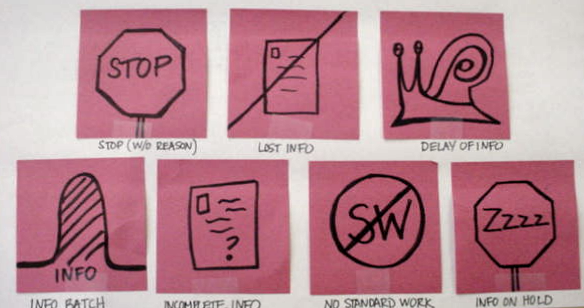 STOP
STOP (W/O REASON)
LOST INFO
DELAY OF INFO
INFO
INFO BATCH
?
INCOMPLETE INFO
SW
NO STANDARD WORK
Zzzz
INFO ON HOLD